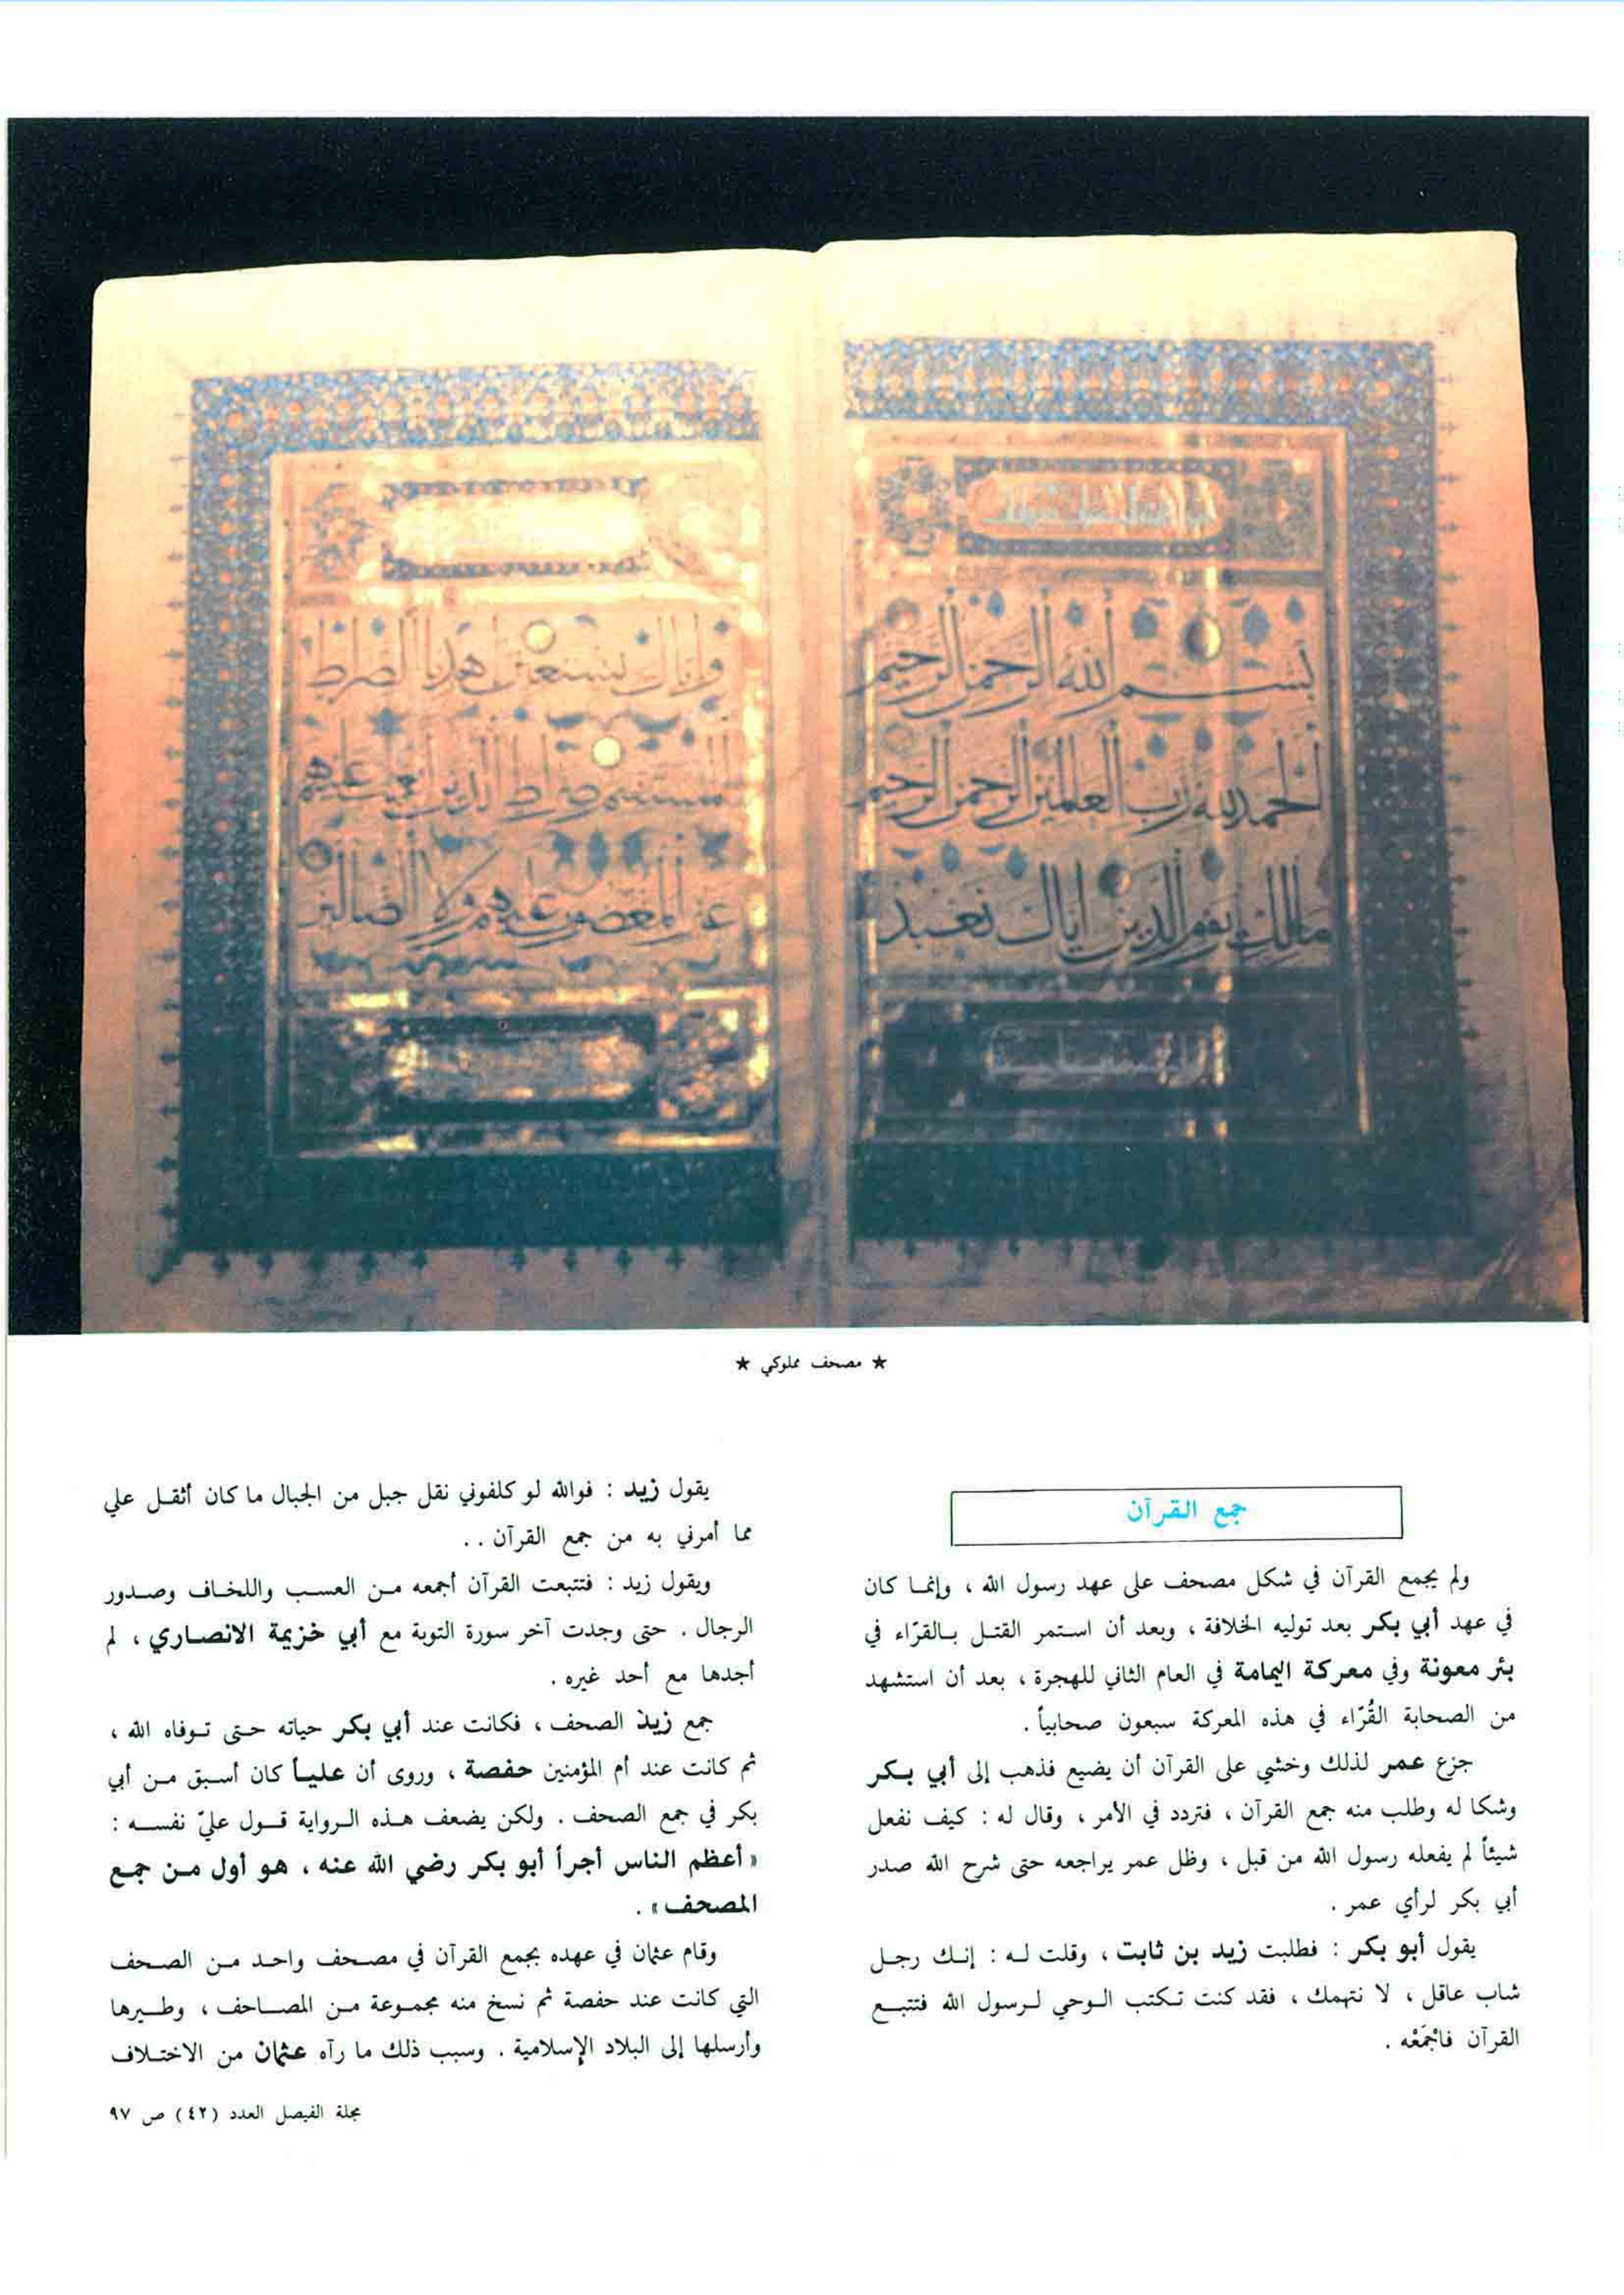 بسم الله الرحمن الرحيم
الحمد لله رب العالمين الرحمن الرحيم
مالك يوم الدين اياك نعبد
واياك نستعين اهدنا الصراط
المستقيم صراط الذين انعمت عليهم
غير المغضوب عليهم ولا الضالين
★ مصحف مملوكي ★
جمع القرآن
ولم يجمع القرآن في شكل مصحف على عهد رسول الله ، وإنما كان
في عهد أبي بكر بعد توليه الخلافة ، وبعد أن استمر القتل بالقرّاء في
بئر معونة وفي معركة اليمامة في العام الثاني للهجرة ، بعد أن استشهد
من الصحابة القُرّاء في هذه المعركة سبعون صحابياً .
جزع عمر لذلك وخشي على القرآن أن يضيع فذهب إلى أبي بكر
وشكا له وطلب منه جمع القرآن ، فتردد في الأمر ، وقال له : كيف نفعل
شيئاً لم يفعله رسول الله من قبل ، وظل عمر يراجعه حتى شرح الله صدر
أبي بكر لرأي عمر .
يقول أبو بكر : فطلبت زيد بن ثابت ، وقلت له : إنك رجل
شاب عاقل ، لا نتهمك ، فقد كنت تكتب الوحي لرسول الله فتتبع
القرآن فاجْمَعْه .
يقول زيد : فوالله لو كلفوني نقل جبل من الجبال ما كان أثقل علي
مما أمرني به من جمع القرآن ..
ويقول زيد : فتتبعت القرآن أجمعه من العسب واللخاف وصدور
الرجال . حتى وجدت آخر سورة التوبة مع أبي خزيمة الانصاري ، لم
أجدها مع أحد غيره .
جمع زيد الصحف ، فكانت عند أبي بكر حياته حتى توفاه الله ،
ثم كانت عند أم المؤمنين حفصة ، وروى أن علياً كان أسبق من أبي
بكر في جمع الصحف . ولكن يضعف هذه الرواية قول عليّ نفسه :
« أعظم الناس أجراً أبو بكر رضي الله عنه ، هو أول من جمع
المصحف » .
وقام عثمان في عهده بجمع القرآن في مصحف واحد من الصحف
التي كانت عند حفصة ثم نسخ منه مجموعة من المصاحف ، وطيرها
وأرسلها إلى البلاد الإسلامية . وسبب ذلك ما رآه عثمان من الاختلاف
مجلة الفيصل العدد (٤٢) ص ٩٧